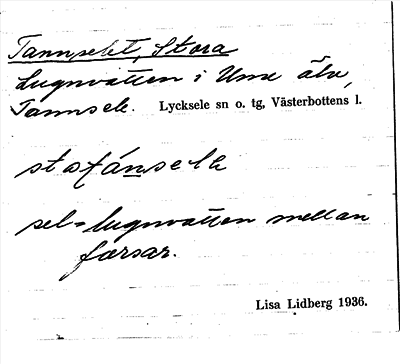 Tannselet, Stora
Lugnvatten i Ume älv,
Tannsele. Lycksele sn o. tg, Västerbottens l.
sel = lugnvatten mellan
forsar.
Lisa Lidberg 1936.